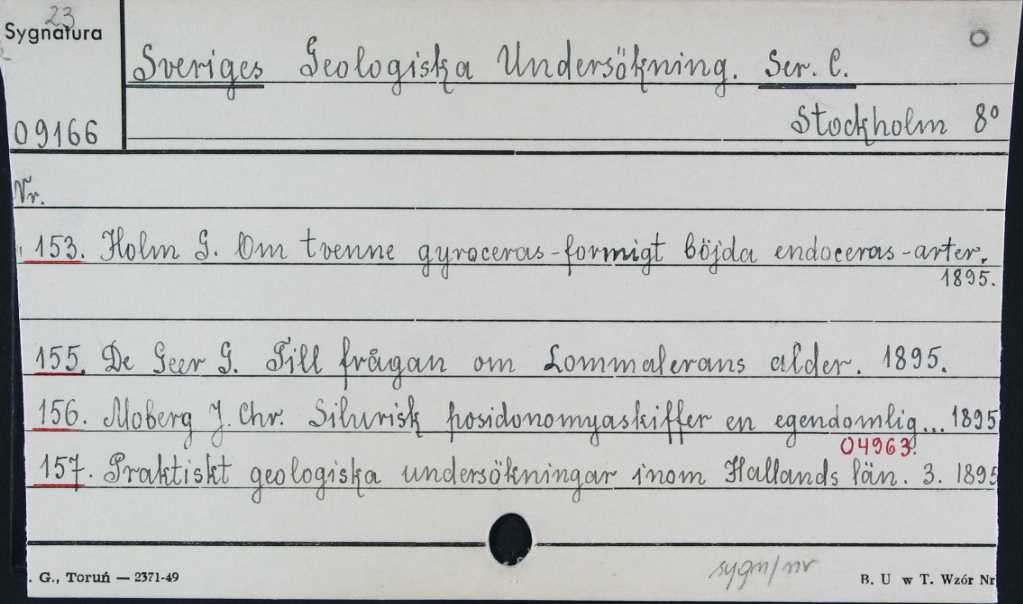 23
Sygnatura
Sveriges Geologiska Undersökning. Ser. C.
09166
Stockholm 8°
Nr.
153. Holm G. Om tvenne gyroceras-formigt böjda endoceras-arter.
1895.
155. De Geer G. Till frågan om Lommalerans alder. 1895.
156. Moberg J. Chr. Silurisk posidonomyaskiffer en egendomlig... 1895
04963.
157. Praktiskt geologiska undersökningar inom Hallands län. 3. 1895
sygn/nr
. G., Toruń — 2371-49
B. U w T. Wzór Nr